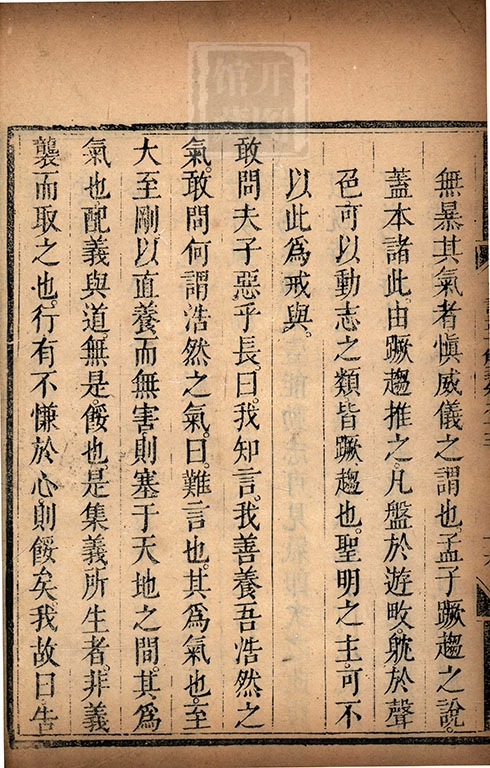 無暴其氣者愼威儀之謂也孟子蹶趨之說。
蓋本諸此。由蹶趨推之。凡盤於遊畋。躭於聲
色可以動志之類皆蹶趨也。聖明之主。可不
以此爲戒與。
敢問夫子惡乎長。曰。我知言。我善養吾浩然之
氣。敢問何謂浩然之氣。曰。難言也。其爲氣也。至
大至剛以直養而無害則塞于天地之間。其爲
氣也配義與道無是餒也是集義所生者。非義
襲而取之也。行有不慊於心。則餒矣。我故曰告